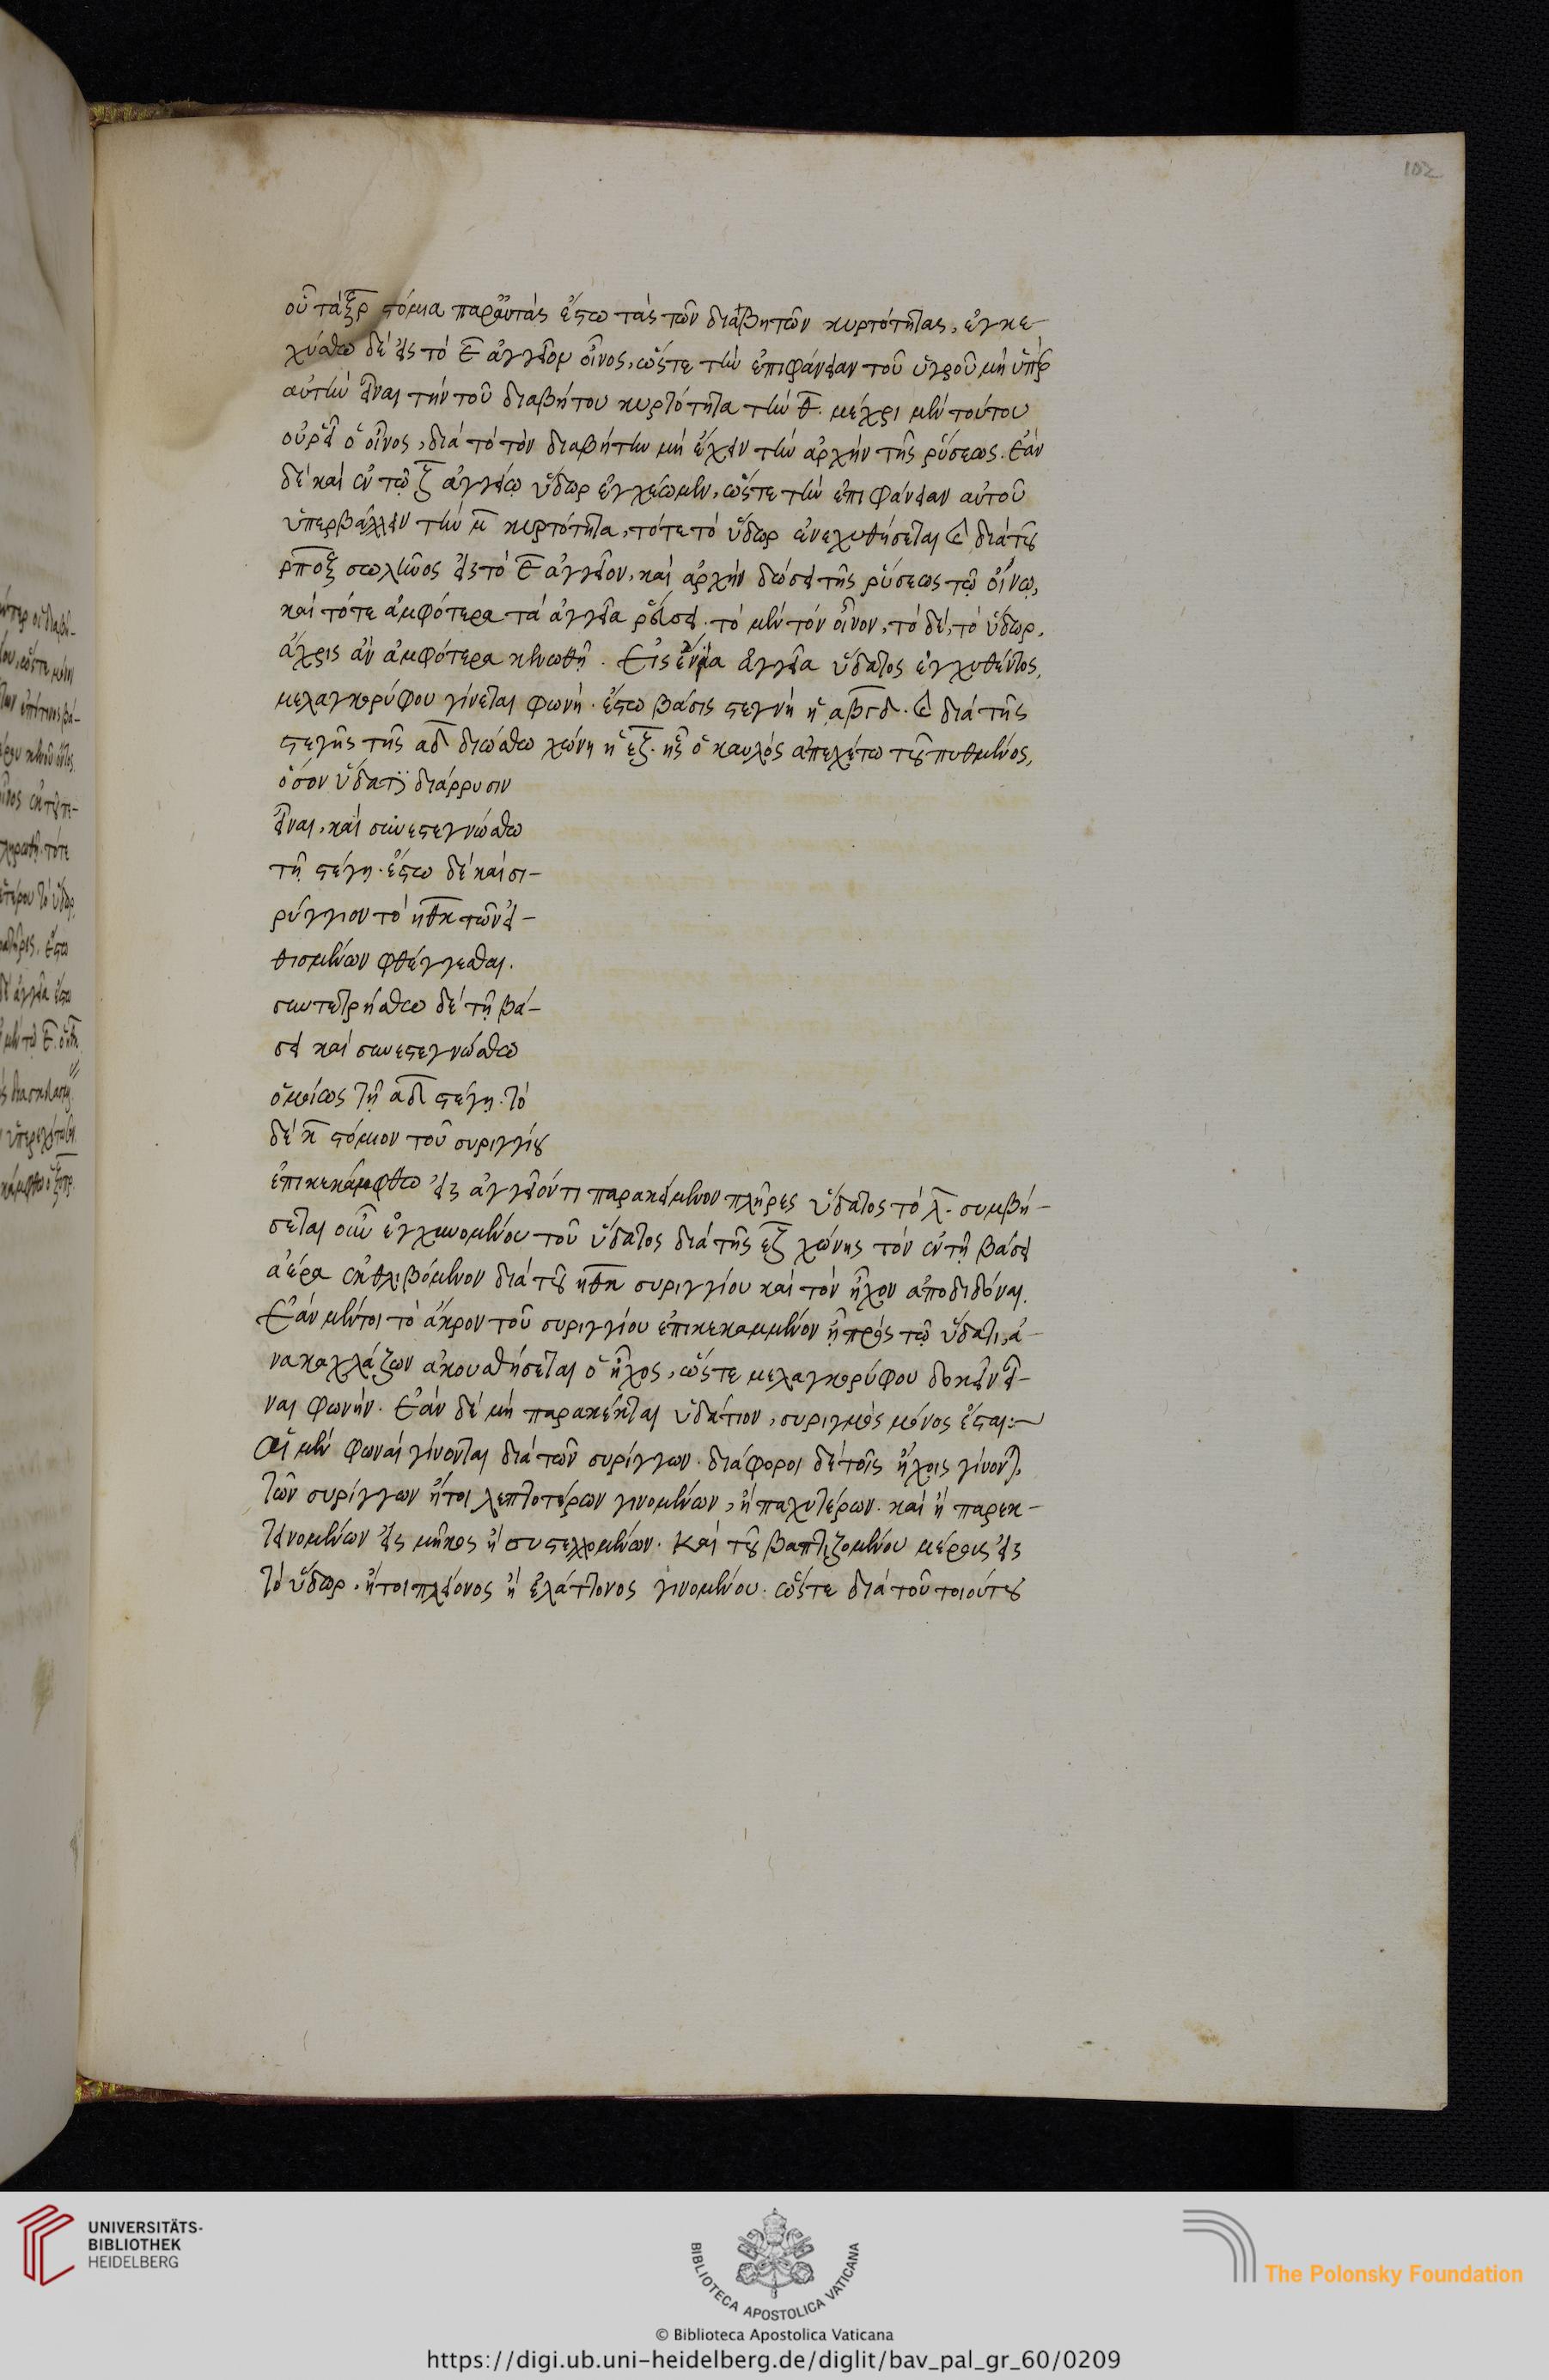 102
οὗ τὰ ξρ στόμια παρ' αὐτὰς ἔστω τὰς τῶν διαβητῶν κυρτότητας, ἐγκε-
χύσθω δὲ εἰς τὸ ε ἀγγεῖον οἶνος, ὥστε τὴν ἐπιφάνειαν τοῦ ὑγροῦ μὴ ὑπὲρ
αὐτὴν εἶναι τὴν τοῦ διαβήτου κυρτότητα τὴν θ. μέχρι μὲν τούτου
οὐ ῥεῖ ὁ οἶνος, διὰ τὸ τὸν διαβήτην μὴ ἔχειν τὴν ἀρχὴν τῆς ῥύσεως. Ἐὰν
δὲ καὶ ἐν τῷ ζ ἀγγείῳ ὕδωρ ἐγχέωμεν, ὥστε τὴν ἐπιφάνειαν αὐτοῦ
ὑπερβάλλειν τὴν μ κυρτότητα, τότε τὸ ὕδωρ ἐνεχυθήσεται καὶ διὰ τοῦ
ρποξ σωλῆνος εἰς τὸ ε ἀγγεῖον, καὶ ἀρχὴν δώσει τῆς ῥύσεως τῷ οἴνῳ,
καὶ τότε ἀμφότερα τὰ ἀγγεῖα ῥεύσει. τὸ μὲν τὸν οἶνον, τὸ δὲ, τὸ ὕδωρ,
ἄχρις ἂν ἀμφότερα κενωθῇ. Εἰς ἔνια ἀγγεῖα ὕδατος ἐγχυθέντος,
μελαγκορύφου γίνεται φωνή. ἔστω βάσις στεγνὴ ἡ αβγδ. καὶ διὰ τῆς
στέγης τῆς αδ διώσθω χώνη ἡ εζ. ἧς ὁ καυλὸς ἀπεχέτω τοῦ πυθμένος,
ὅσον ὕδατι διάρρυσιν
εἶναι, καὶ συνεστεγνώσθω
τῇ στέγῃ. ἔστω δὲ καὶ σι-
ρύγγιον τὸ ηθκ τῶν εἰ-
θισμένων φθέγγεσθαι.
συντετρήσθω δὲ τῇ βά-
σει καὶ συνεστεγνώσθω
ὁμοίως τῇ αδ στέγῃ. τὸ
δὲ κ στόμιον τοῦ συριγγίου
ἐπικεκάμφθω εἰς ἀγγεῖον τι παρακείμενον πλῆρες ὕδατος τὸ λ. συμβή-
σεται οὖν ἐγχυνομένου τοῦ ὕδατος διὰ τῆς εζ χώνης τὸν ἐν τῇ βάσει
ἀέρα ἐκθλιβόμενον διὰ τοῦ ηθκ συριγγίου καὶ τὸν ἦχον ἀποδιδόναι.
Ἐὰν μέντοι τὸ ἄκρον τοῦ συριγγίου ἐπικεκαμμένον ᾖ πρὸς τῷ ὕδατι, ἀ-
νακαχλάζων ἀκουσθήσεται ὁ ἦχος, ὥστε μελαγκορύφου δοκεῖν εἶ-
ναι φωνήν. Ἐὰν δὲ μὴ παρακέηται ὑδάτιον, συριγμὸς μόνος ἔσται:~
Αἱ μὲν φωναὶ γίνονται διὰ τῶν συρίγγων. διάφοροι δὲ τοῖς ἤχοις γίνονται,
τῶν συρίγγων ἤτοι λεπτοτέρων γινομένων, ἢ παχυτέρων. καὶ ἢ παρεκ-
τεινομένων εἰς μῆκος ἢ συστελλομένων. καὶ τοῦ βαπτιζομένου μέρους εἰς
τὸ ὕδωρ, ἤτοι πλείονος ἢ ἐλάττονος γινομένου. ὥστε διὰ τοῦ τοιούτου
UNIVERSITÄTS-
BIBLIOTHEK
HEIDELBERG
BIBLIOTECA APOSTOLICA VATICANA
The Polonsky Foundation
© Biblioteca Apostolica Vaticana
https://digi.ub.uni-heidelberg.de/diglit/bav_pal_gr_60/0209